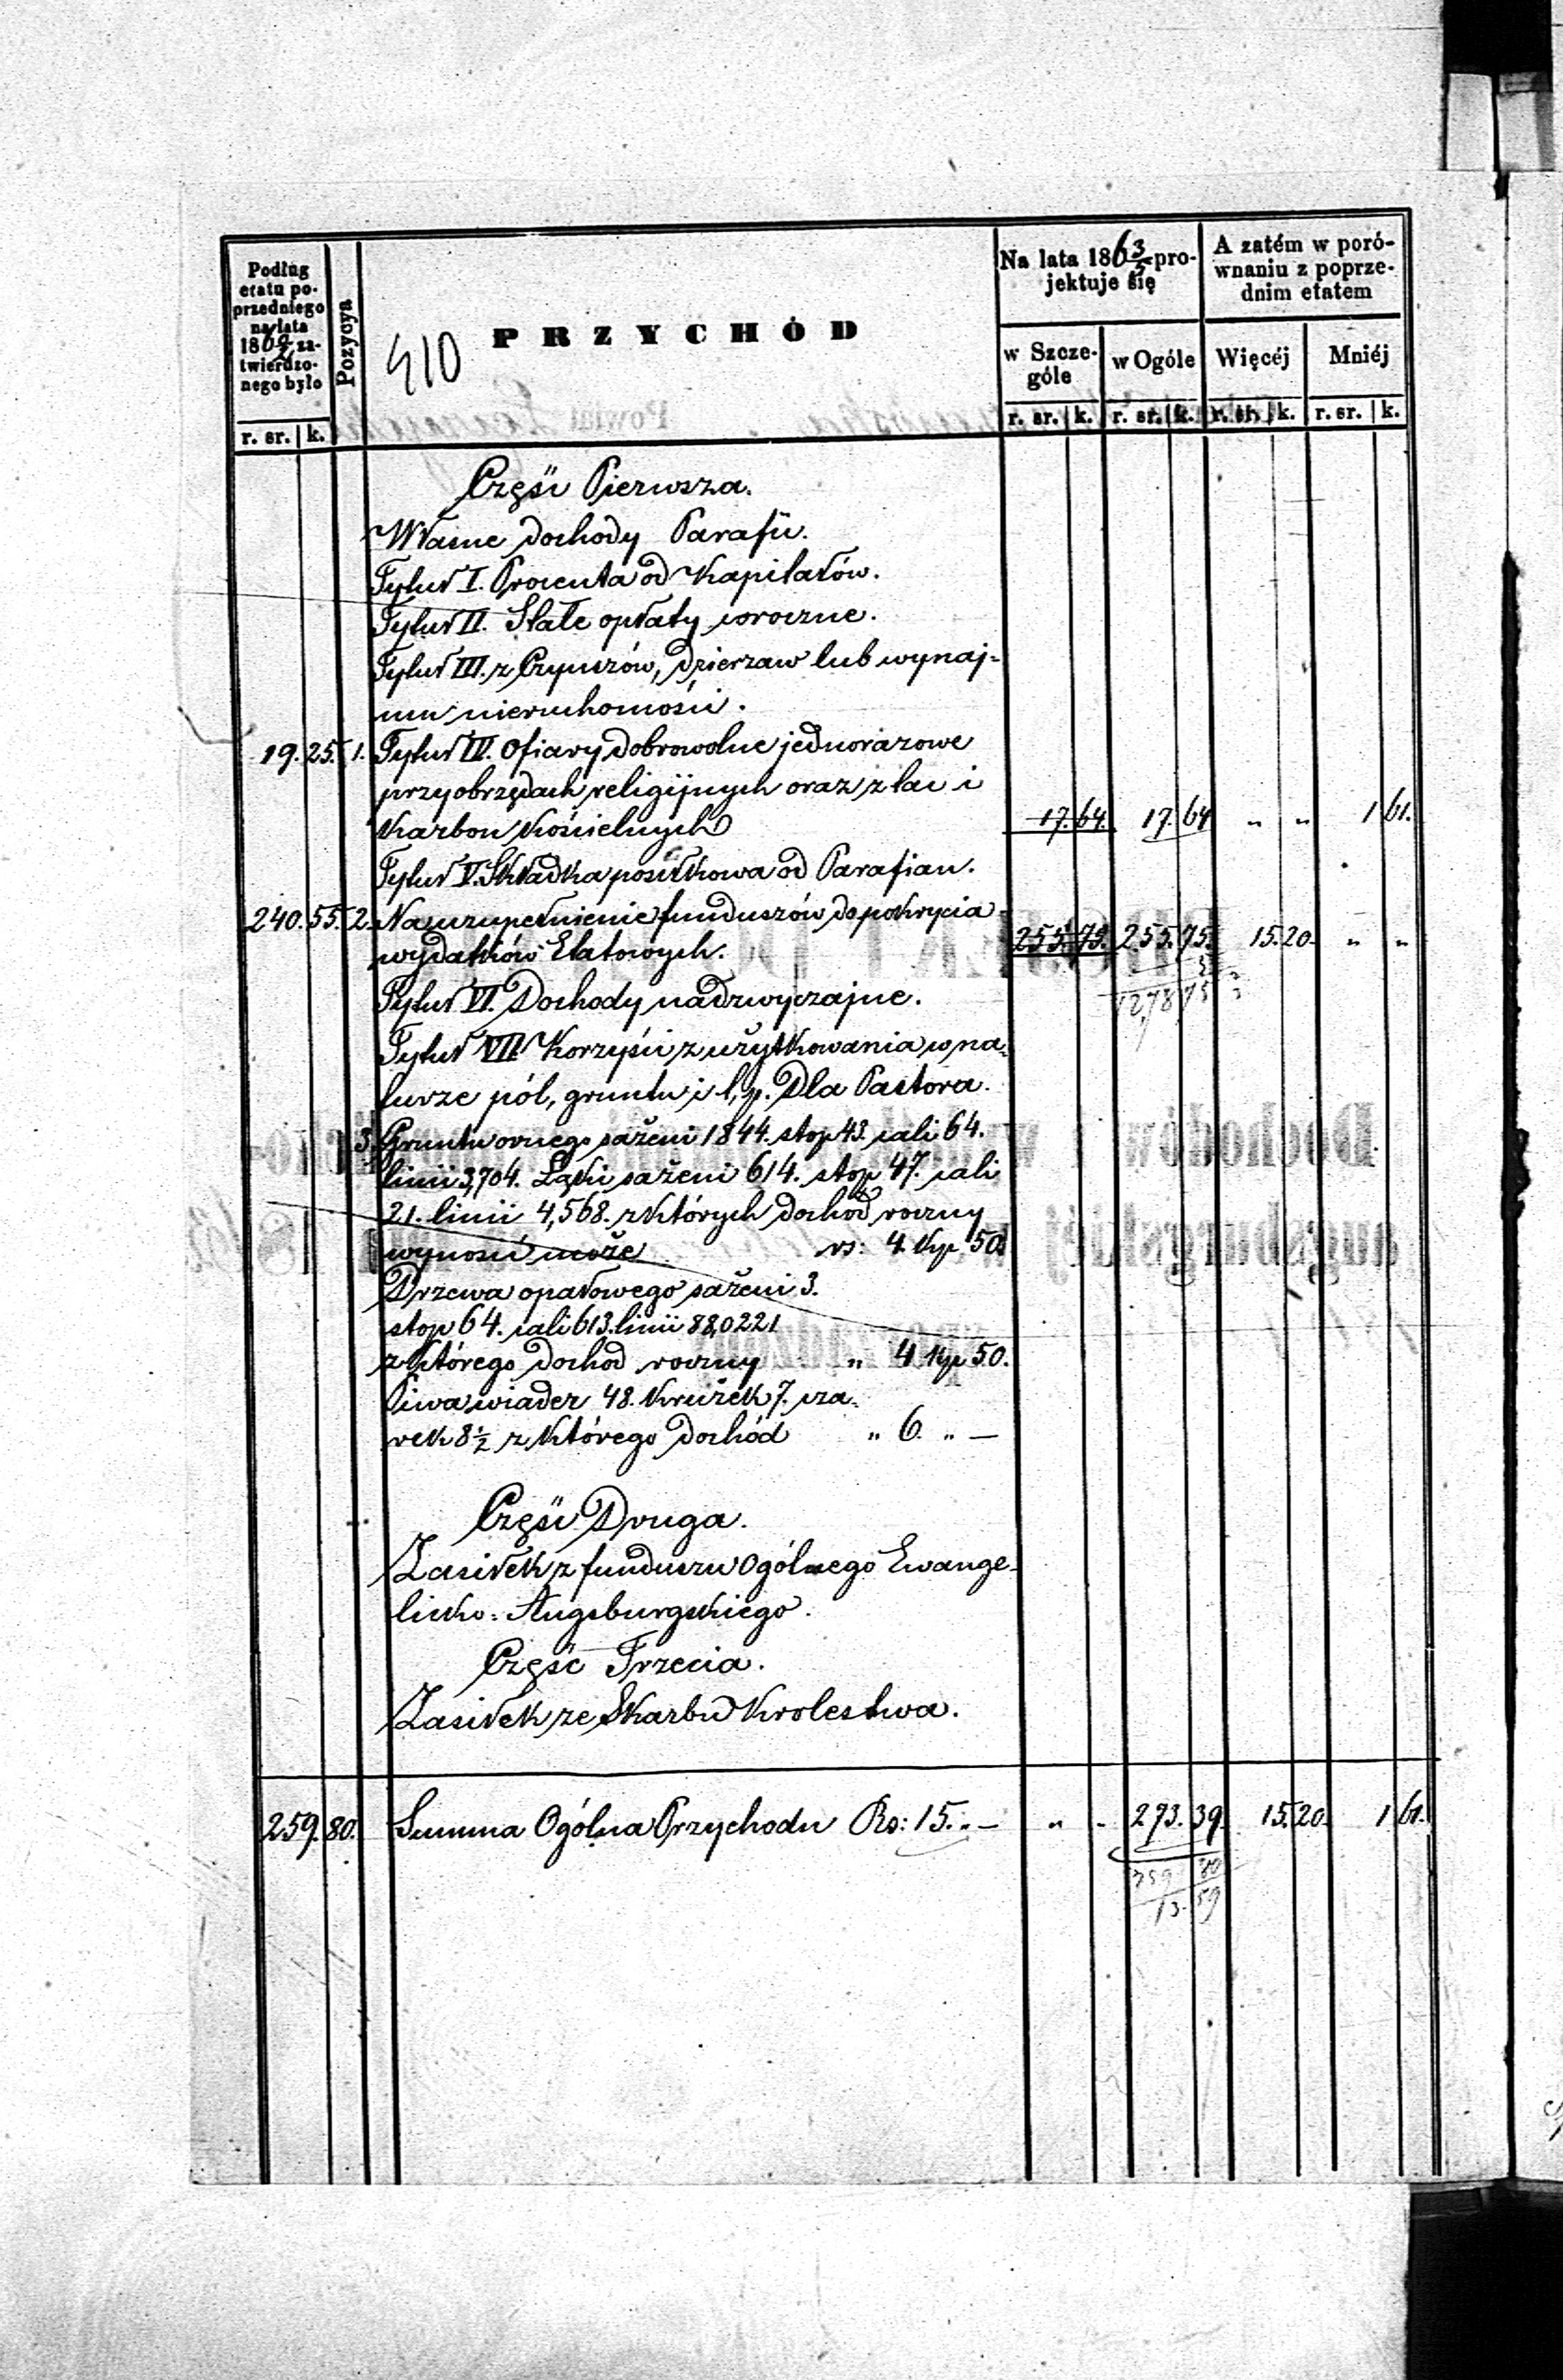 Podług
etatu po-
przedniego
na lata
186 za-
twierdzo-
nego było
r. sr. | k.
Pozycya
410
PRZYCHÓD
Na lata 1863/5 pro-
jektuje się
w Szcze-
góle
w Ogóle
r. sr. | k. r. sr. | k.
A zatém w poró-
wnaniu z poprze-
dnim etatem
Więcéj
Mniéj
r. sr. | k. r. sr. | k.
Część Pierwsza.
Własne dochody Parafii.
Tytuł I. Procenta od Kapitałów.
Tytuł II. Stałe opłaty coroczne.
Tytuł III. z Czynszów, Dzierzaw lub wynaj-
mu nieruchomości.
19. 25. 1. Tytuł IV. Ofiary dobrowolne jednorazowe
przy obrzędach religijnych oraz z tac i
Karbon Kościelnych 17. 64. 17. 64 " " 1 61.
Tytuł V. Składka posiłkowa od Parafian.
240. 55. 2. Na uzupełnienie funduszów do pokrycia
wydatków Etatowych. 255. 75. 255. 75. 15. 20. " "
1278 75
Tytuł VI. Dochody nadzwyczajne.
Tytuł VII Korzyści z użytkowania w na-
turze pól, gruntu i t, p. Dla Pastora.
3. Gruntu ornego sażeni 1844. stop 43. cali 64.
linii 3,704. Łąki sażeni 614. stop 47. cali
21. linii 4,568. z których dochód roczny
wynosić może rs: 4. Kp 50.
Drzewa opałowego sażeni 3.
stop 64. cali 613. linii 88,0221
z którego dochod roczny " 4 Kp 50.
Piwa wiader 48. Krużek 7. cza-
rek 8 1/2 z którego dochód " 6. " —
Część Druga.
Zasiłek z funduszu Ogólnego Ewange-
licko-Augsburgskiego.
Część Trzecia.
Zasiłek ze Skarbu Krolestwa.
259. 80. Summa Ogólna Przychodu Rs: 15. " — " - 273. 39. 15. 20. 1. 61.
259 80
13. 59